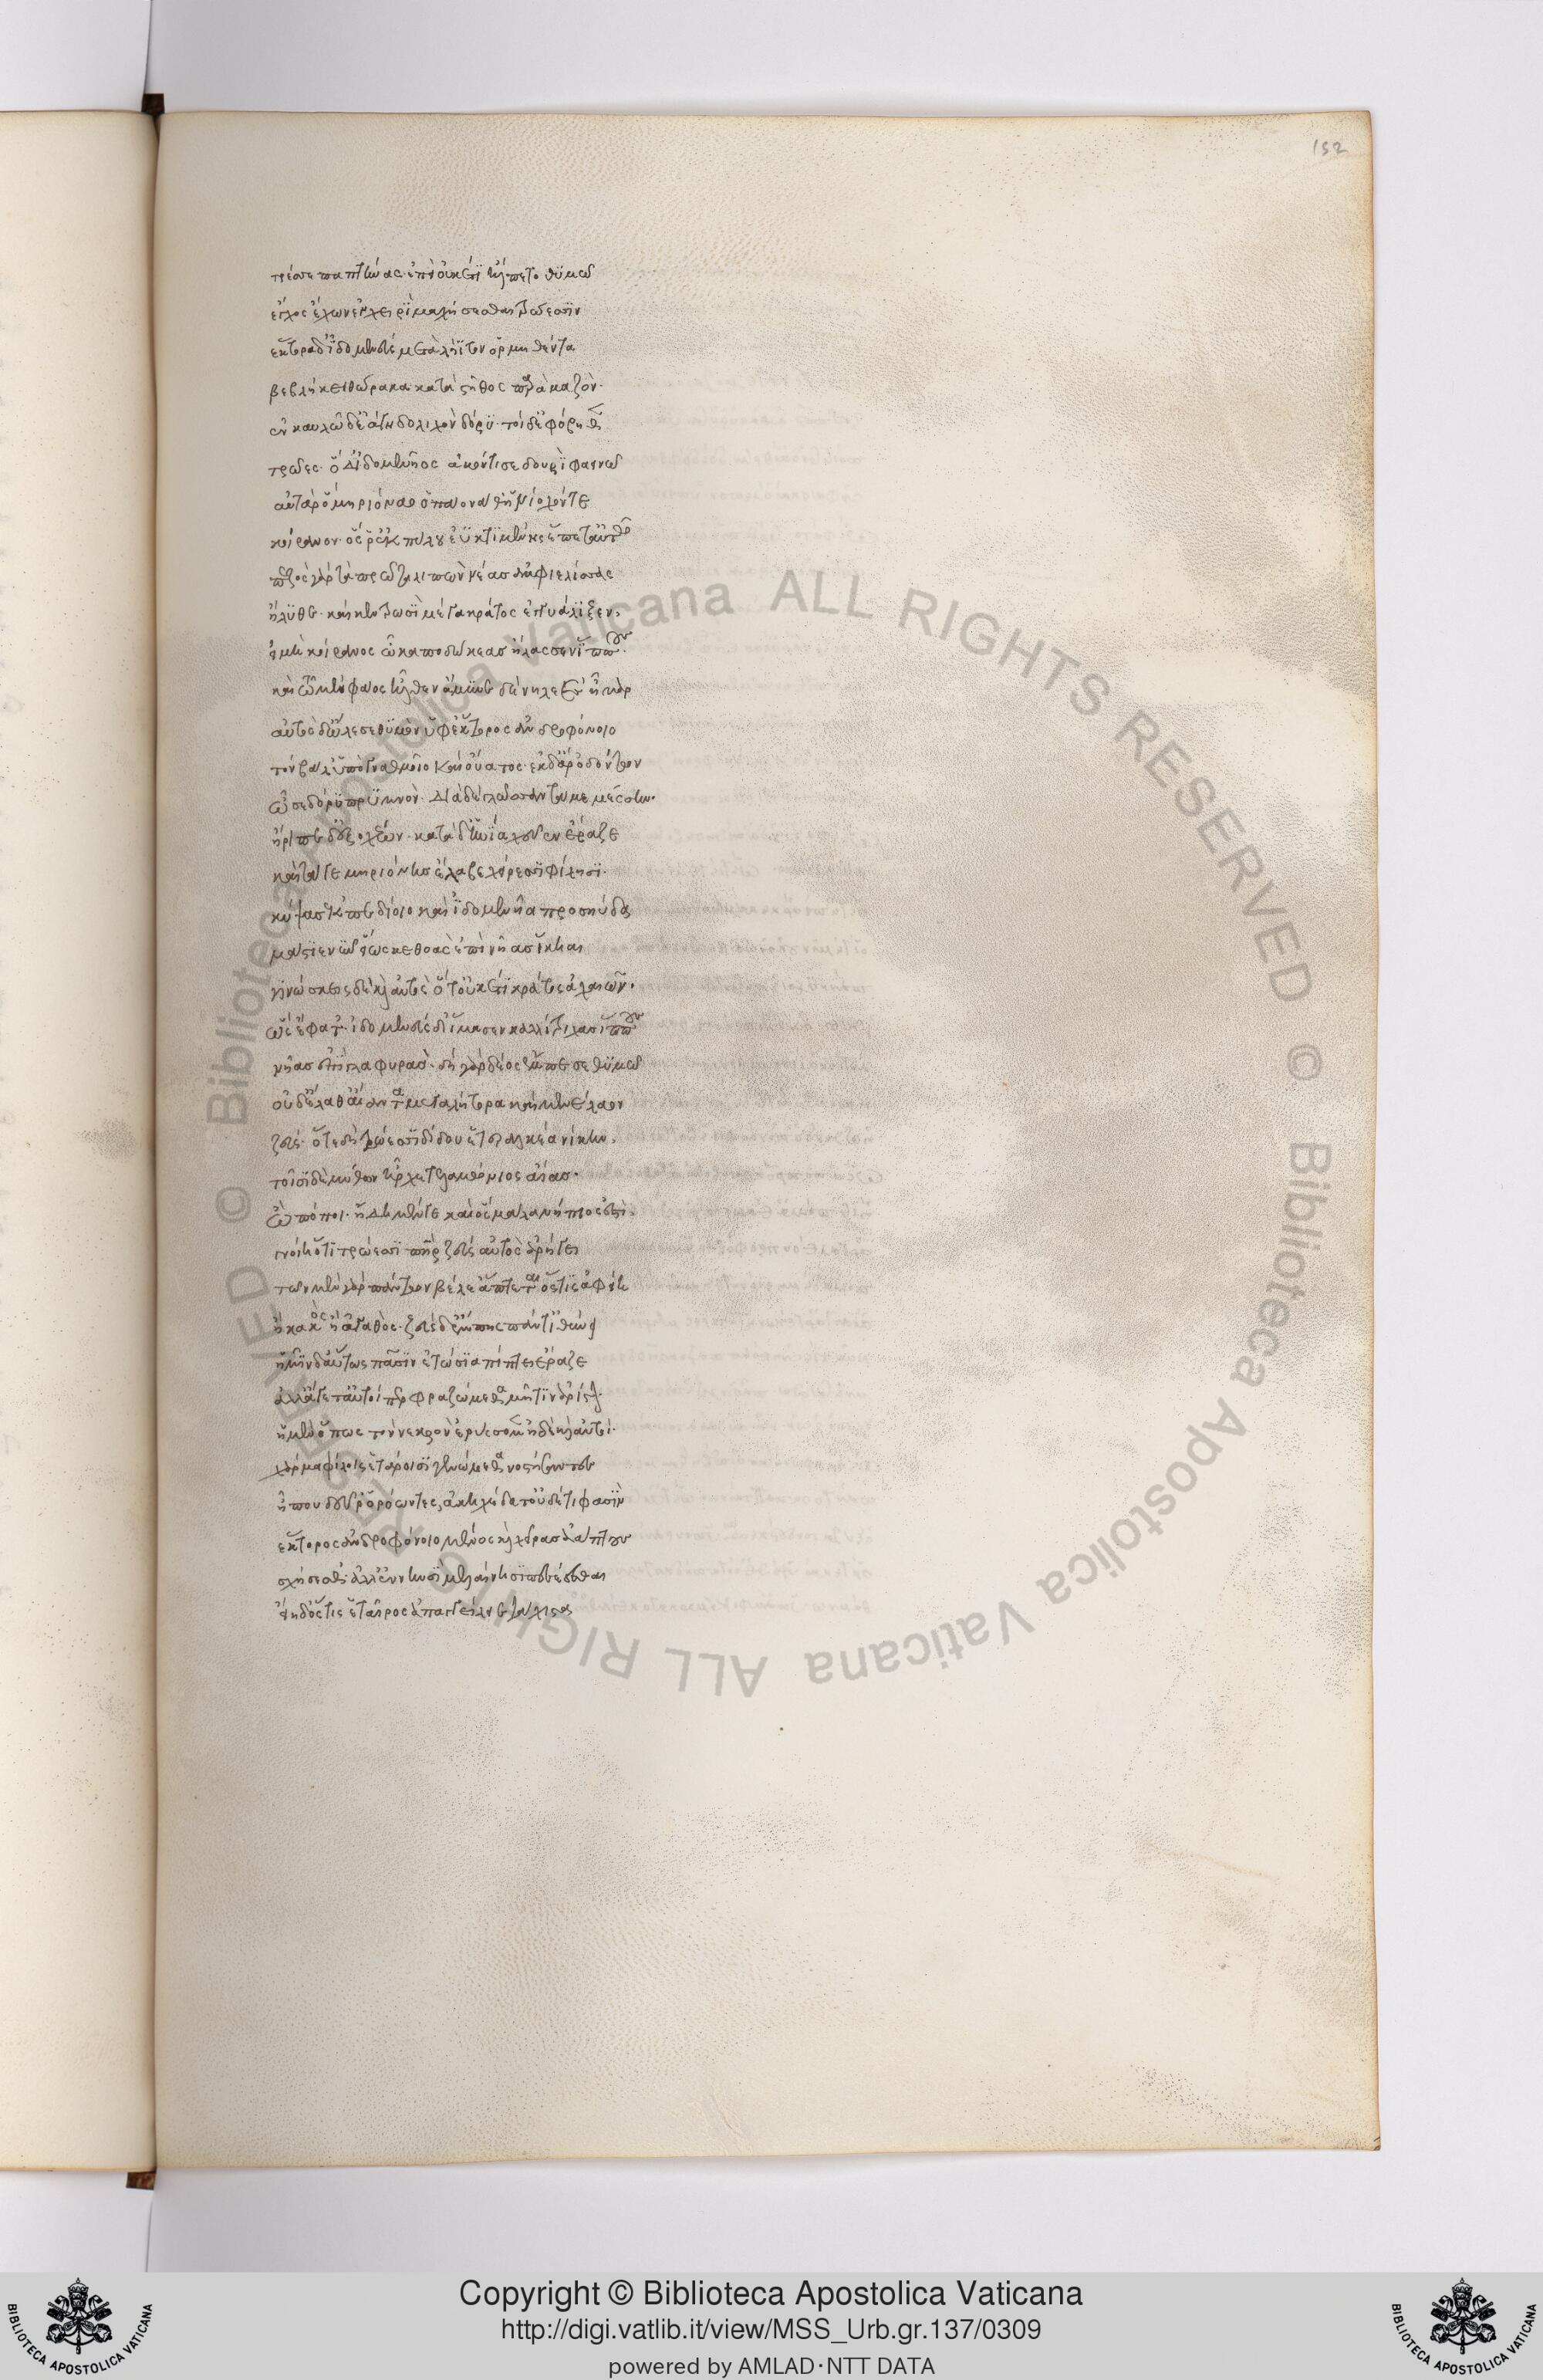 152
τρέσσε παπτήνας· ἐπεὶ οὐκέτι ἔλπετο θυμῶ
ἔγχος ἔχων ἐν χειρὶ μαχήσεσθαι τρώεσσιν
ἕκτορα δ' ἰδομενεὺς μετὰ λήϊτον ὁρμηθέντα
βεβλήκει θώρηκα κατὰ στῆθος παρὰ μαζόν·
ἐν καυλῶ δ' ἐάγη δολιχὸν δόρυ· τοὶ δ' ἐβόησαν
τρῶες· ὁ δ' ἰδομενῆος ἀκόντισε δουρὶ φαεινῶ
αὐτὰρ ὁ μηριόναο ὀπάονα θ' ἡνίοχόν τε
κοίρανον· ὅς ῥ' ἐκ λύκτου ἐϋκτιμένης ἕπετ' αὐτῶ
πεζὸς γὰρ τὰ πρῶτα λιπὼν νέας ἀμφιελίσσας
ἤλυθε· καί κεν τρωσὶ μέγα κράτος ἐγγυάλιξεν,
εἰ μὴ κοίρανος ὦκα ποδώκεας ἤλασεν ἵππους·
καὶ τῶ μὲν φάος ἦλθεν ἄμυνε δὲ νηλεὲς ἦμαρ
αὐτὸς δ' ὤλεσε θυμὸν ὑφ' ἕκτορος ἀνδροφόνοιο
τὸν βάλ' ὑπὸ γναθμοῖο καὶ οὔατος· ἐκ δ' ἄρ' ὀδόντων
ὦσε δόρυ πρυμνόν· διὰ δὲ γλῶσσαν τάμε μέσσην·
ἤριπε δ' ἐξ ὀχέων· κατὰ δ' ἡνία χεῦεν ἔραζε
καὶ τά γε μηριόνης ἔλαβε χείρεσσι φίλησι·
κύψας ἐκ πεδίοιο καὶ ἰδομενῆα προσηύδα
μάστιε νῦν εἵως κε θοὰς ἐπὶ νῆας ἵκηαι
γινώσκεις δὲ καὶ αὐτὸς ὅτ' οὐκέτι κράτος ἀχαιῶν·
ὣς ἔφατ'· ἰδομενεὺς δ' ἵμασεν καλλίτριχας ἵππους
νῆας ἔπι γλαφυράς· δὴ γὰρ δέος ἔμπεσε θυμῶ
οὐδ' ἔλαθ' αἴαντα μεγαλήτορα καὶ μενέλαον
ζεύς· ὅτε δὴ τρώεσσι δίδου ἑτεραλκέα νίκην,
τοῖσι δὲ μύθων ἦρχε τελαμώνιος αἴας·
ὢ πόποι· ἤδη μέν κε καὶ ὃς μάλα νήπιός ἐστι,
γνοίη ὅτι τρώεσσι πατὴρ ζεὺς αὐτὸς ἀρήγει
τῶν μὲν γὰρ πάντων βέλε' ἅπτεται ὅστις ἀφείη
ἢ κακὸς ἢ ἀγαθός· ζεὺς δ' ἔμπης πάντ' ἰθύνει
ἡμῖν δ' αὔτως πᾶσιν ἐτώσια πίπτει ἔραζε
ἀλλ' ἄγετ' αὐτοί περ φραζώμεθα μῆτιν ἀρίστην·
ἠμὲν ὅπως τὸν νεκρὸν ἐρύσσομεν ἠδὲ καὶ αὐτοὶ·
χάρμα φίλοις ἑτάροισι γενώμεθα νοστήσαντες
οἵ που δεῦρ' ὁρόωντες, ἀκηχέδατ' οὐδ' ἔτι φασὶν
ἕκτορος ἀνδροφόνοιο μένος καὶ χεῖρας ἀάπτους
σχήσεσθ' ἀλλ' ἐν νηυσὶ μελαίνησι πεσέεσθαι
εἴη δ' ὅστις ἑταῖρος ἀπαγγείλειε τάχιστα
Copyright © Biblioteca Apostolica Vaticana
http://digi.vatlib.it/view/MSS_Urb.gr.137/0309
powered by AMLAD·NTT DATA